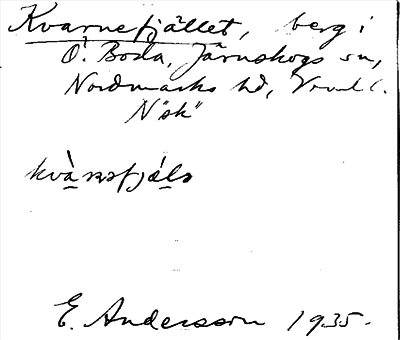 Kvarnefjället, berg i
Ö. Boda, Järnskogs sn,
Nordmarks hd, Vrml.
N"sk"
E. Andersson 1935.